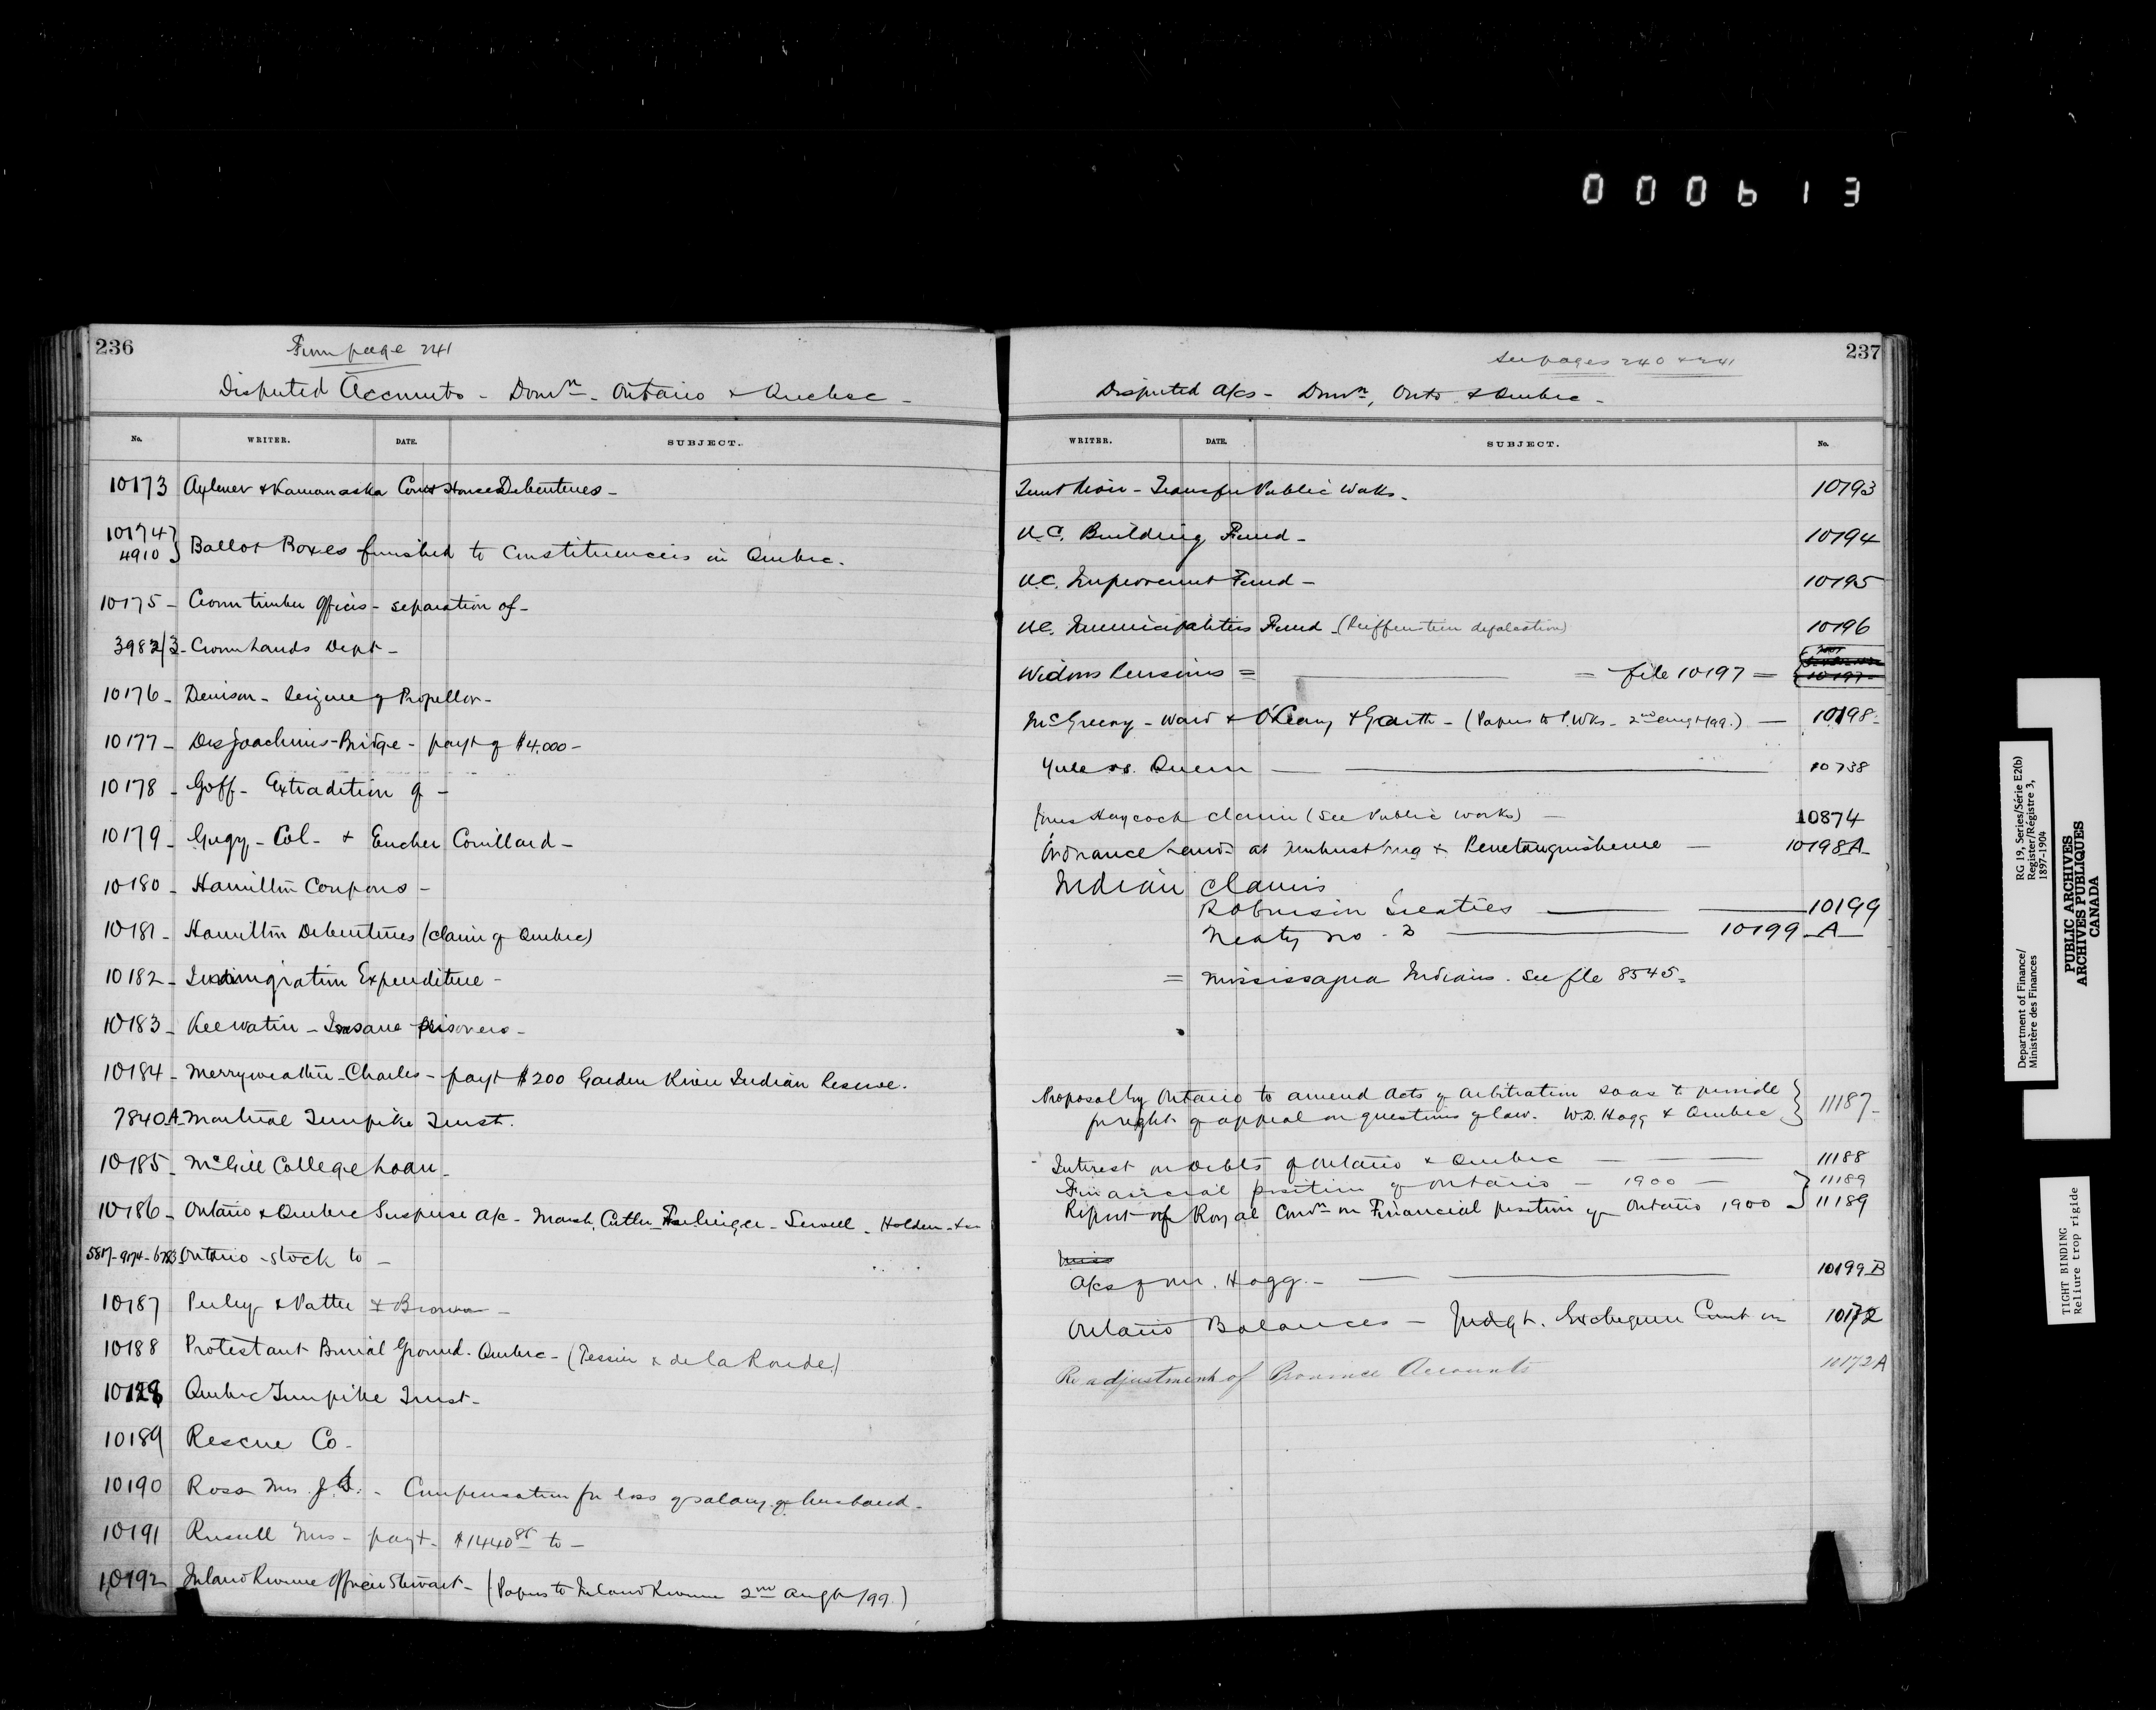 000613
236
From page 241
Disputed Accounts - Domn. - Ontario & Quebec -
No. WRITER. DATE. SUBJECT.
10173 Aylmer & Kamouraska Court House Debentures -
10174 } Ballot Boxes furnished to Constituencies in Quebec.
4910
10175 - Crown timber offices - separation of -
3982/3 - Crown Lands Dept -
10176 - Denison - Seizure of Propellor -
10177 - Des Joachims - Bridge - payt of $4,000 -
10178 - Goff - Extradition of -
10179 - Gugy - Col - & Eucher Couillard -
10180 - Hamilton Coupons -
10181 - Hamilton Debentures (claim of Quebec)
10182 - Immigration Expenditure -
10183 - Keewatin - Insane prisoners -
10184 - Merryweather - Charles - payt $200 Garden River Indian Reserve.
7840A - Montreal Turnpike Trust.
10185 - McGill College Loan -
10186 - Ontario & Quebec Suspense a/c - Marsh, Cutler - - Sewell - Holden -
5817 - 9174 - 6783 Ontario - stock to -
10187 Perley & Pattee & Brown -
10188 Protestant Burial Ground. Quebec - (Tessier & de la Ronde)
10128 Quebec Turnpike Trust -
10189 Rescue Co -
10190 Ross Mrs. J. - Compensation for loss of salary of husband -
10191 Russell Mrs - payt - $1440 to -
10192 Inland Revenue Officer Stewart - (Papers to Inland Revenue 2nd Augt/99)
237
See pages 240 & 241
Disputed a/cs - Domn, Onto & Quebec -
WRITER. DATE. SUBJECT. No.
Trent River - Transfer Public Works - 10193
U.C. Building Fund - 10194
U.C. Improvement Fund - 10195
U.C. Municipalities Fund - (Reiffenstein defalcation) 10196
Widows Pensions = = file 10197 = 10197
McGreevy - Ward & O'Leary & Garth - (Papers to P. Wks - 2nd Augt/99.) - 10198 -
Yule vs. Queen - 10738
Jones Haycock claim (See Public Works) - 10874
Ordnance Lands at Amherstburg & Penetanguishene - 10198A -
Indian Claims
Robinson Treaties - 10199
Treaty No. 3 - 10199 A -
= Mississagua Indians. See file 8545 =
Proposal by Ontario to amend Acts of Arbitration so as to provide } 11187 -
for right of appeal on questions of law. W.D. Hogg & Quebec
Interest on debts of Ontario & Quebec - 11188
Financial position of Ontario - 1900 - } 11189
Report of Royal Comn on Financial position of Ontario 1900 - 11189
Miss
A/cs of Mr. Hogg. - 10199 B
Ontario Balances - Judgt. Exchequer Court in 10172
Readjustment of Province Accounts 10172A
Department of Finance/
Ministère des Finances
RG 19, Series/Série E2(b)
Register/Régistre 3,
1897-1904
PUBLIC ARCHIVES
ARCHIVES PUBLIQUES
CANADA
TIGHT BINDING
Reliure trop rigide